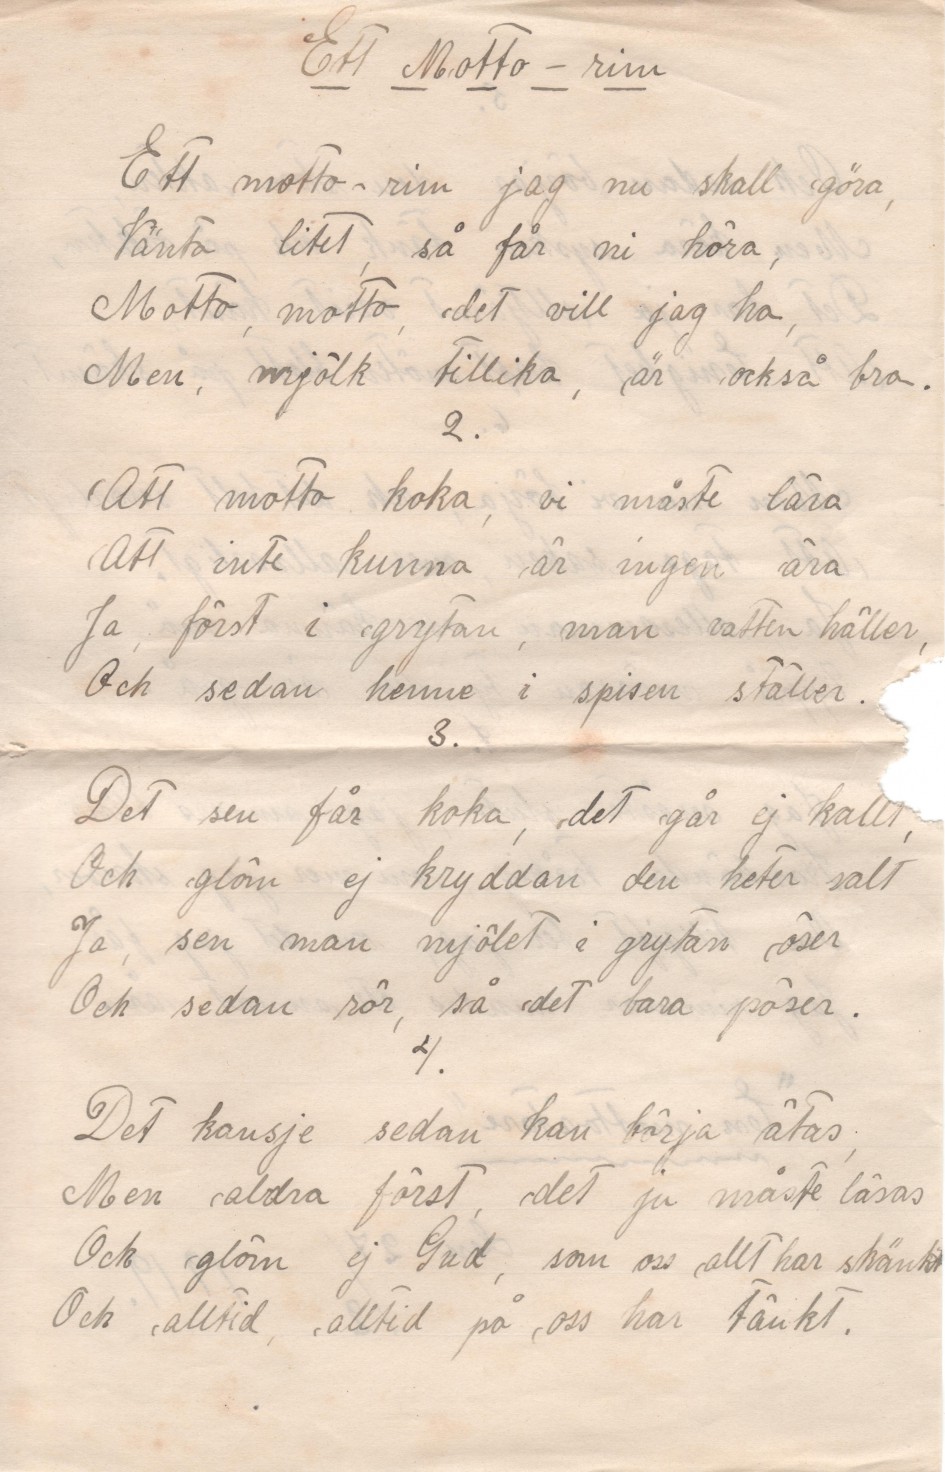 Ett Motto - rim
Ett motto - rim jag nu skall göra,
Vänta litet, så får ni höra,
Motto, motto, det vill jag ha,
Men, mjölk tillika, är också bra.
2.
Att motto koka, vi måste lära
Att inte kunna är ingen ära
Ja, först i grytan, man vatten häller,
Och sedan henne i spisen ställer.
3.
Det sen får koka, det går ej kallt,
Och glöm ej kryddan den heter salt
Ja, sen man mjölet i grytan öser
Och sedan rör, så det bara pöser.
4.
Det kansje sedan kan börja ätas,
Men aldra först, det ju måste läsas
Och glöm ej Gud, som oss allt har skänkt
Och alltid, alltid på oss har tänkt.